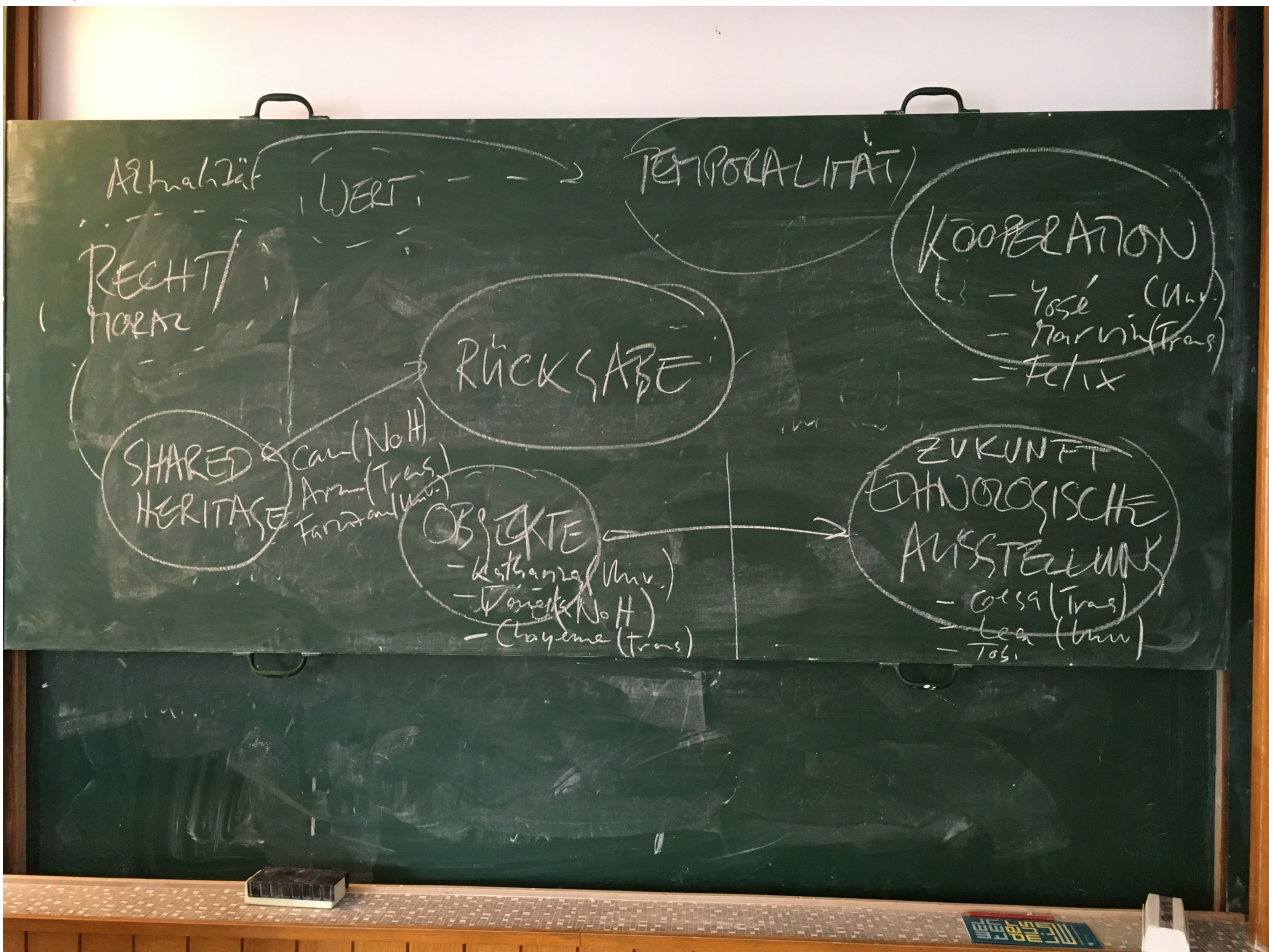 Aktualität
WERT
TEMPORALITÄT
RECHT/
MORAL
KOOPERATION
- José (Univ.)
- Marvin (Trans)
- Felix
RÜCKGABE
SHARED
HERITAGE
Can (NoH)
(Trans)
(Univ.)
OBJEKTE
- Katharina (Univ.)
- (NoH)
- Chayenne (Trans)
ZUKUNFT
ETHNOLOGISCHE
AUSSTELLUNG
- Gesa (Trans)
- Lea (Univ)
- Tobi